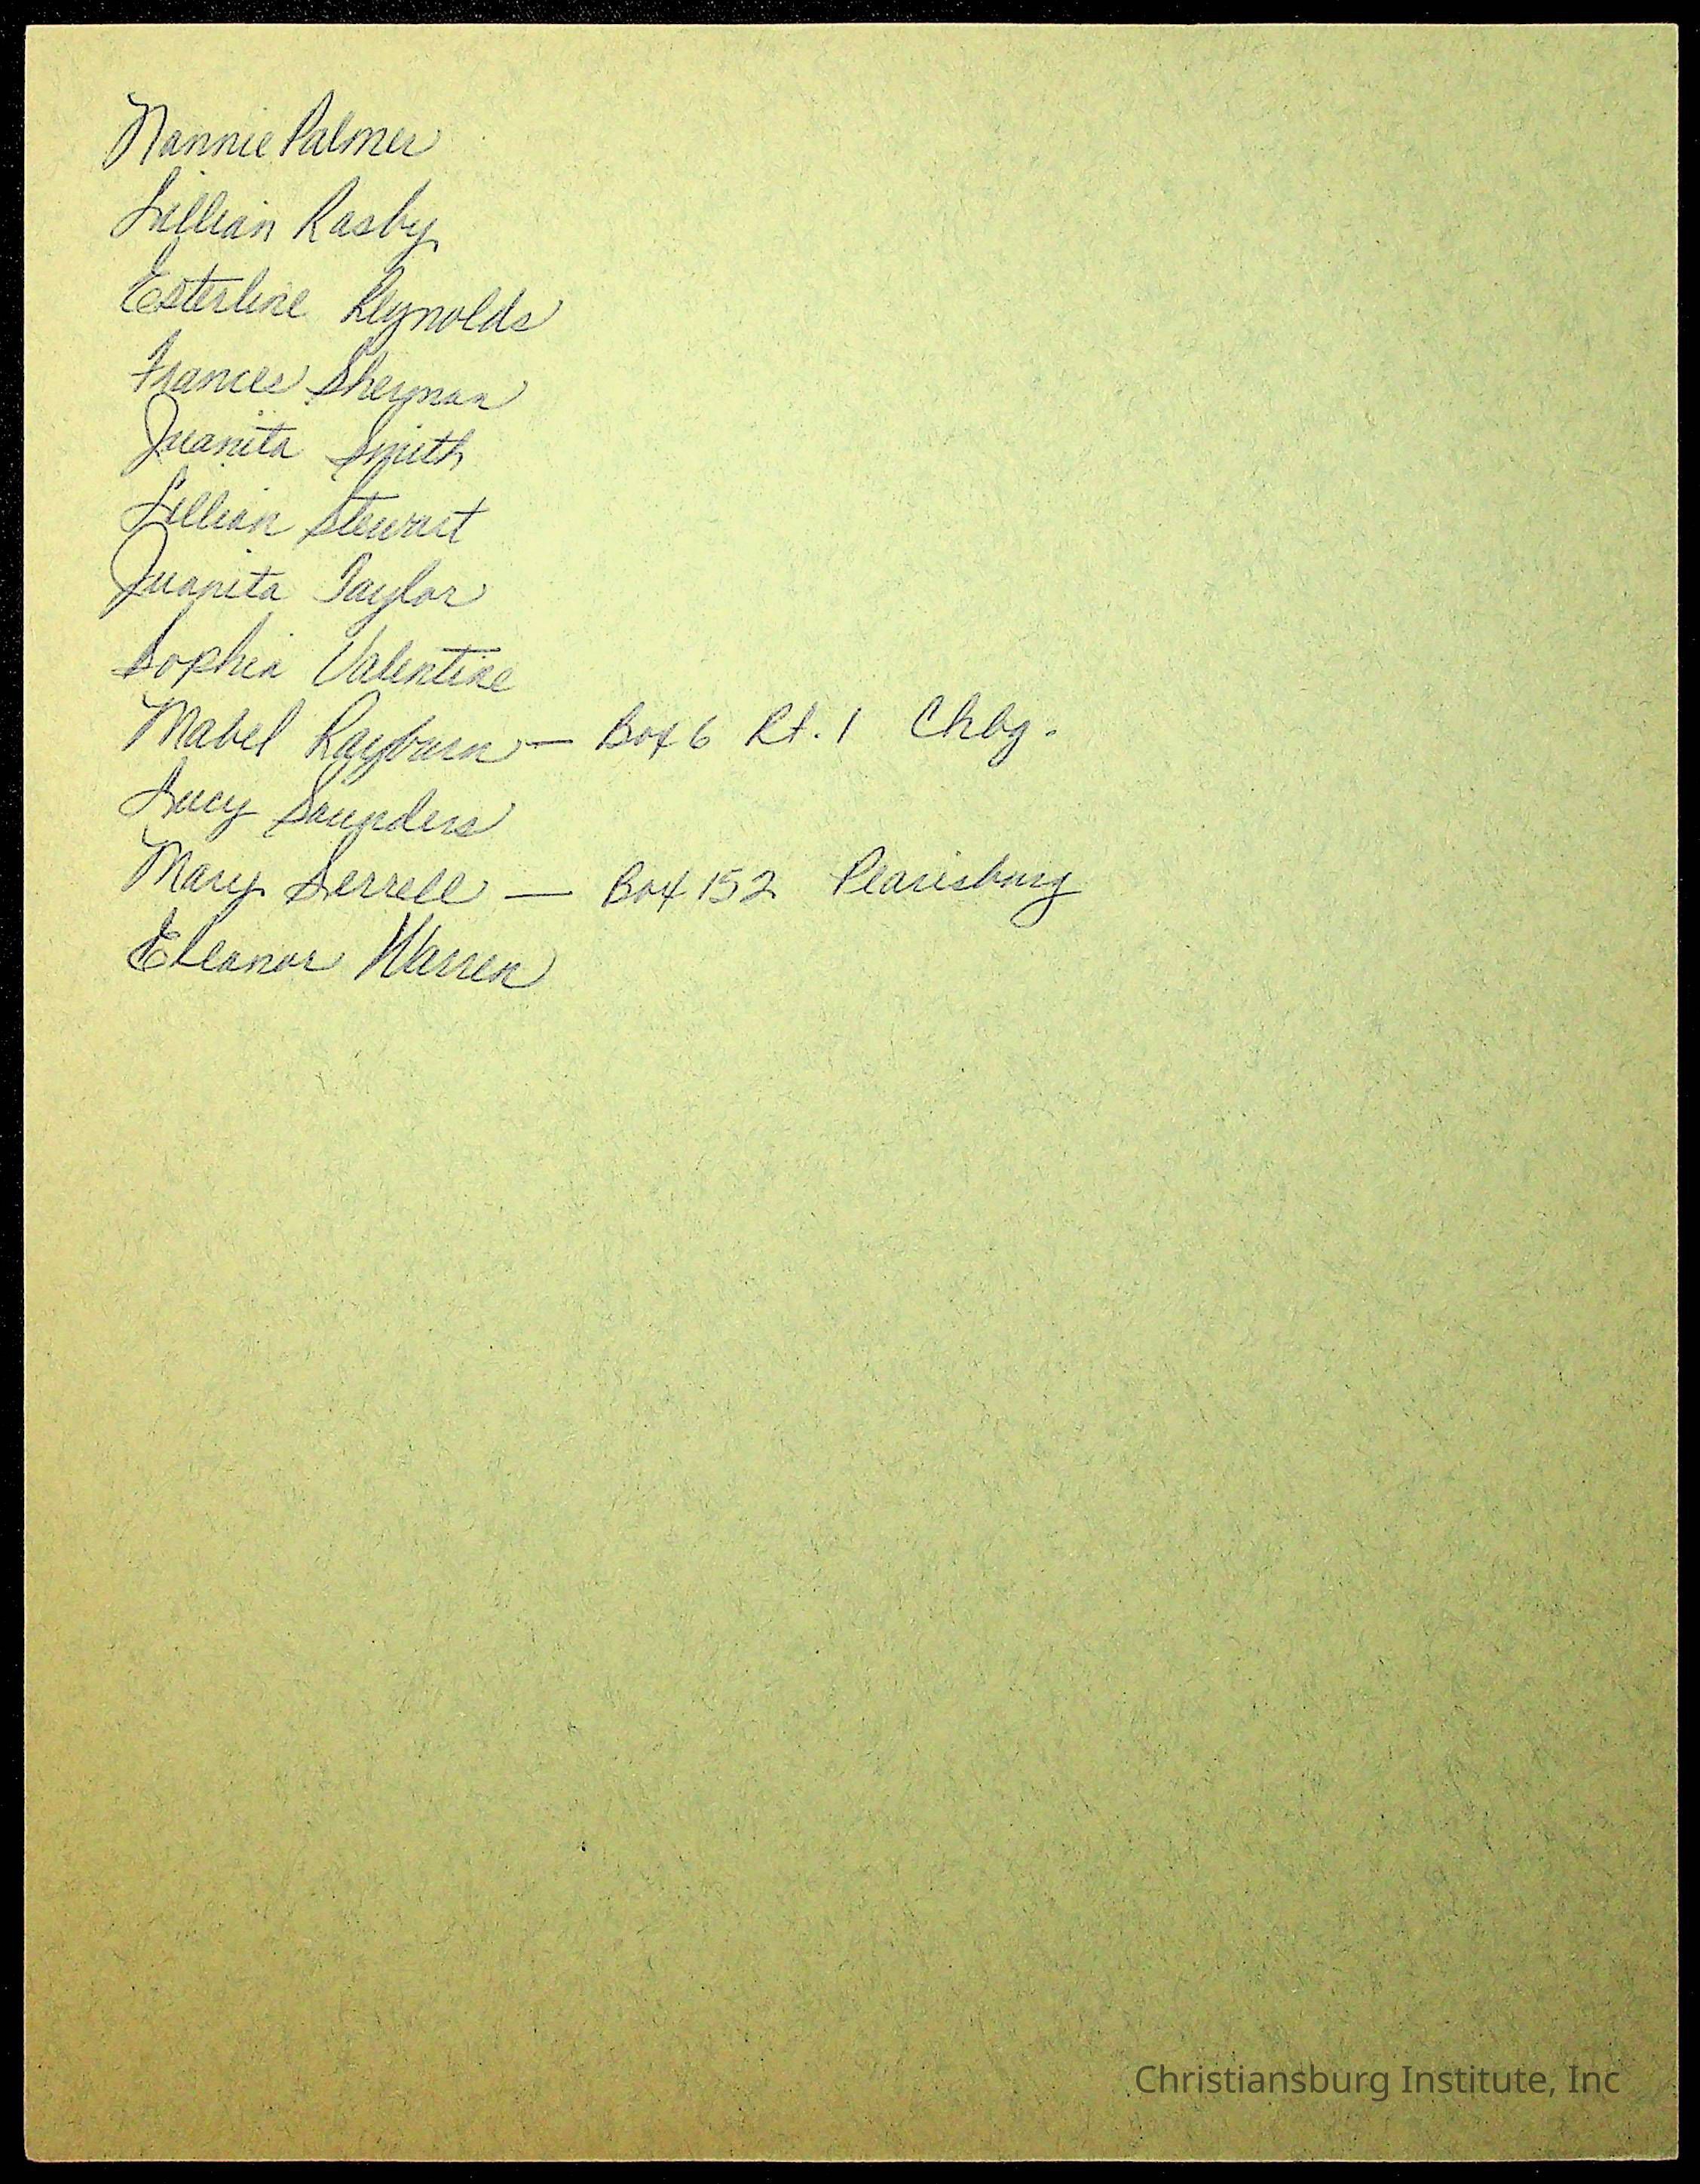 Nannie Palmer
Lillian Rasby
Esterline Reynolds
Frances Sherman
Juanita Smith
Lillian Stewart
Juanita Taylor
Sophia Valentine
Mabel Rayburn — Box 6 Rt. 1 Chbg.
Lucy Saunders
Mary Serrell — Box 152 Pearisburg
Eleanor Warren
Christiansburg Institute, Inc